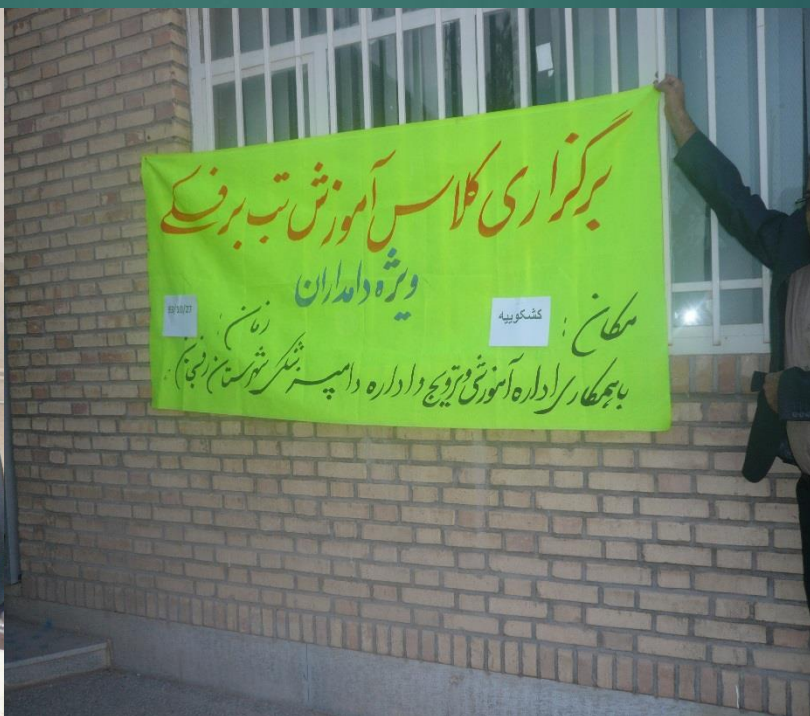 برگزاری کلاس آموزش تب برفکی
ویژه دامداران
مکان : کشکوییه زمان :
باهمکاری اداره آموزش وترویج و اداره دامپزشکی شهرستان رفسنجان